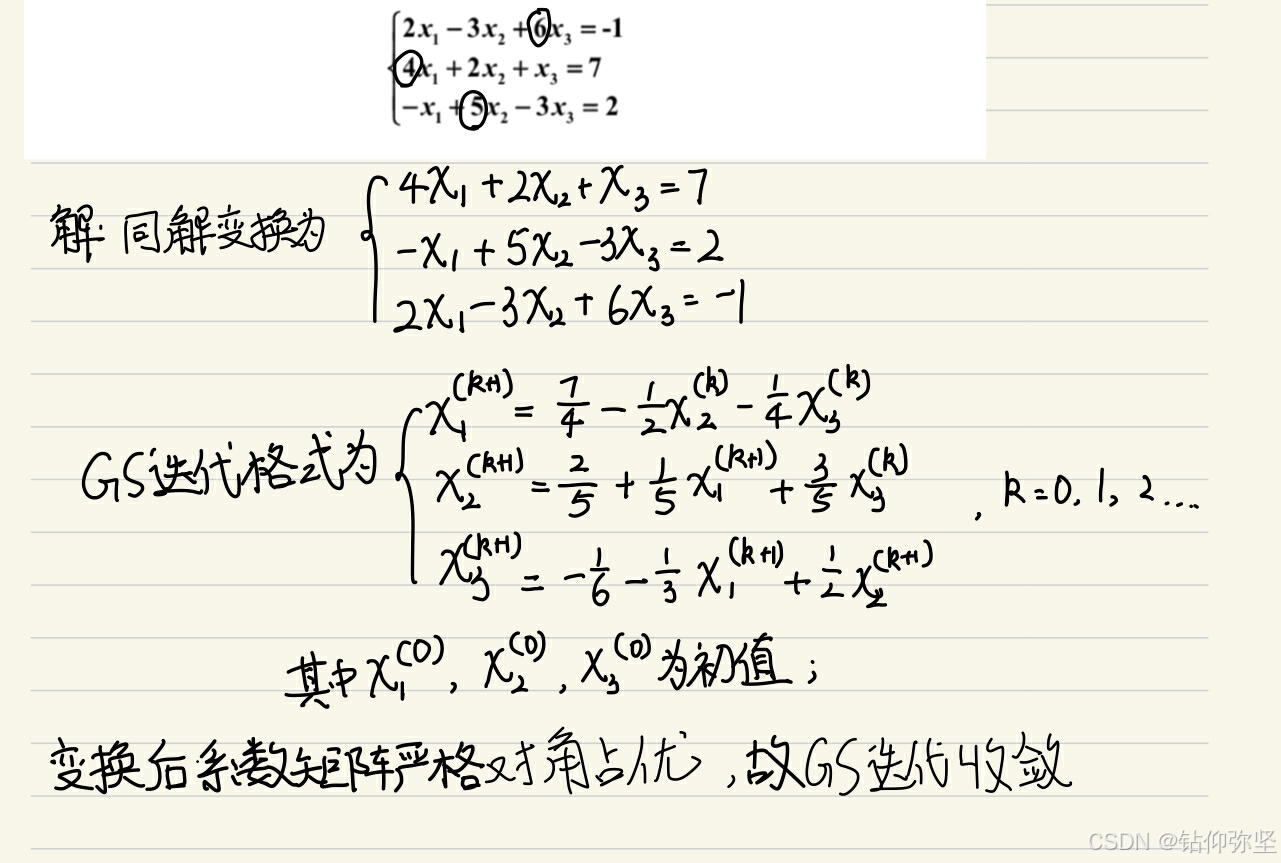 2x₁ − 3x₂ + 6x₃ = -1
4x₁ + 2x₂ + x₃ = 7
−x₁ + 5x₂ − 3x₃ = 2
解: 同解变换为
4x₁ + 2x₂ + x₃ = 7
−x₁ + 5x₂ − 3x₃ = 2
2x₁ − 3x₂ + 6x₃ = −1
GS迭代格式为
x₁^(k+1) = 7/4 − 1/2 x₂^(k) − 1/4 x₃^(k)
x₂^(k+1) = 2/5 + 1/5 x₁^(k+1) + 3/5 x₃^(k) , k=0, 1, 2 ...
x₃^(k+1) = −1/6 − 1/3 x₁^(k+1) + 1/2 x₂^(k+1)
其中 x₁^(0), x₂^(0), x₃^(0) 为初值;
变换后系数矩阵严格对角占优,故GS迭代收敛
CSDN @钻仰弥坚